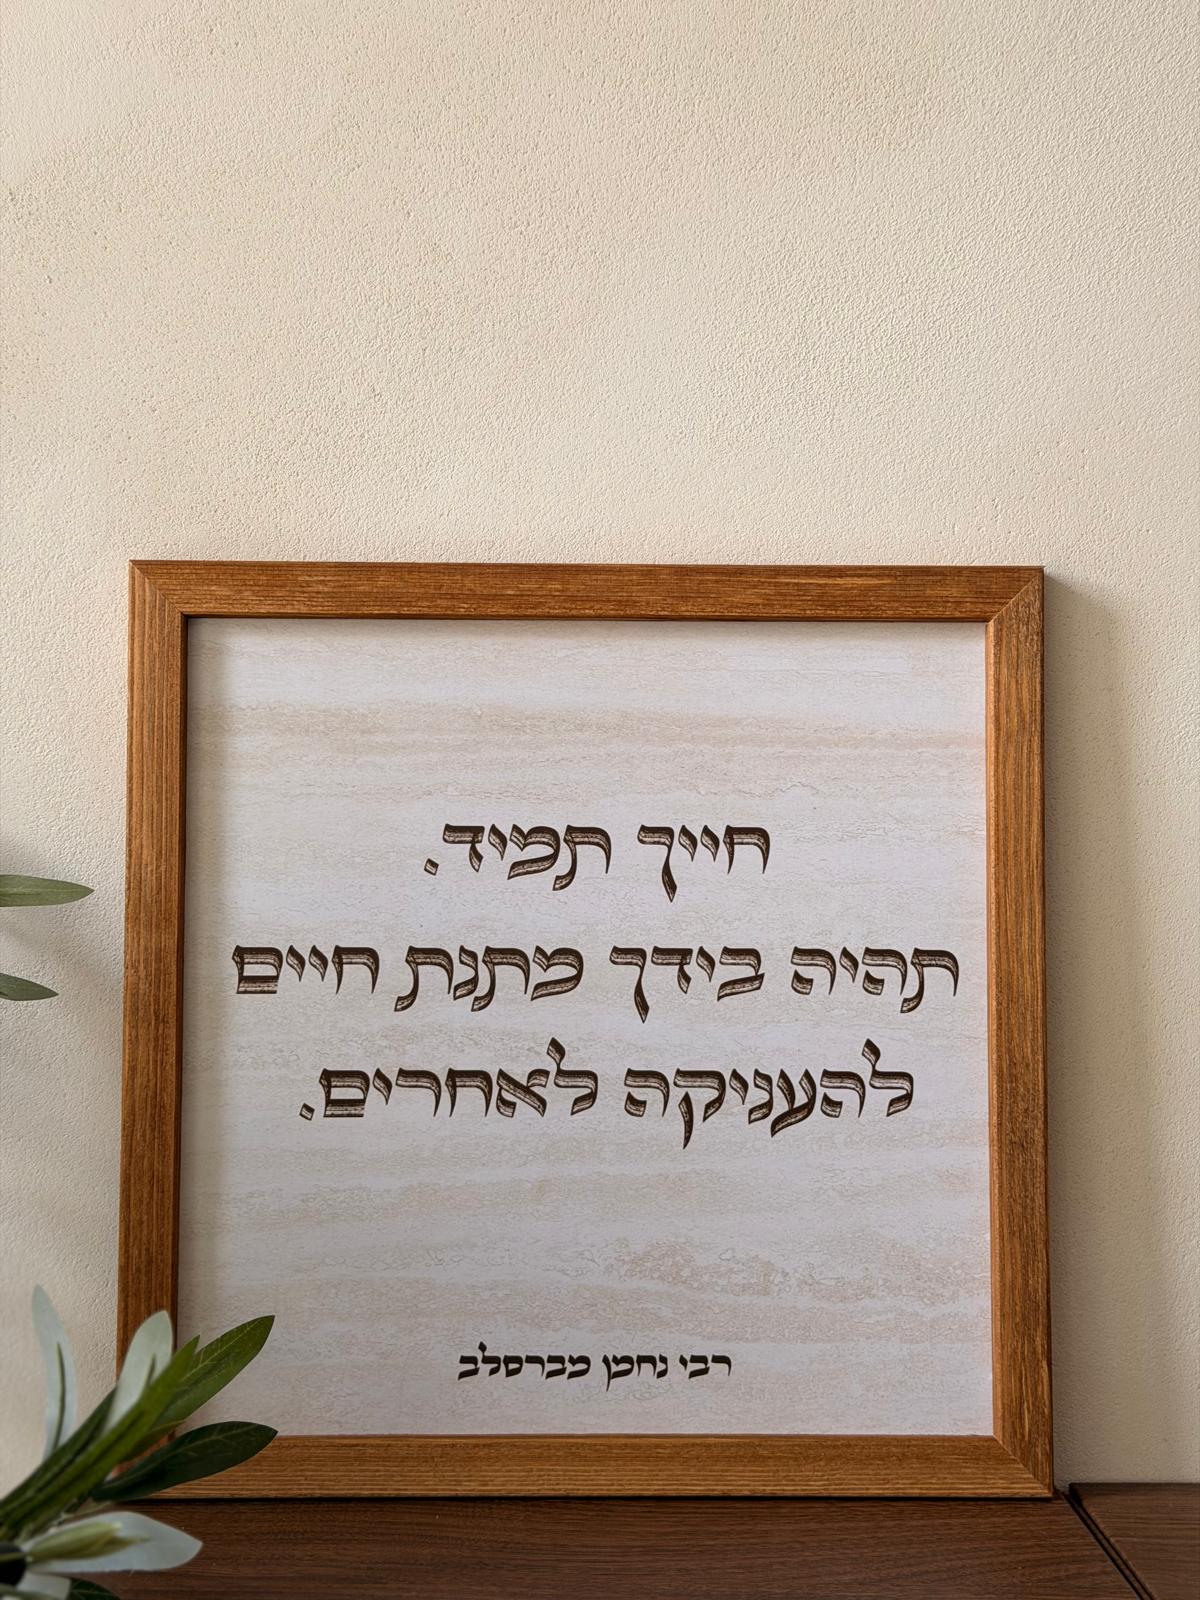 חייך תמיד.
תהיה בידך מתנת חיים
להעניקה לאחרים.
רבי נחמן מברסלב